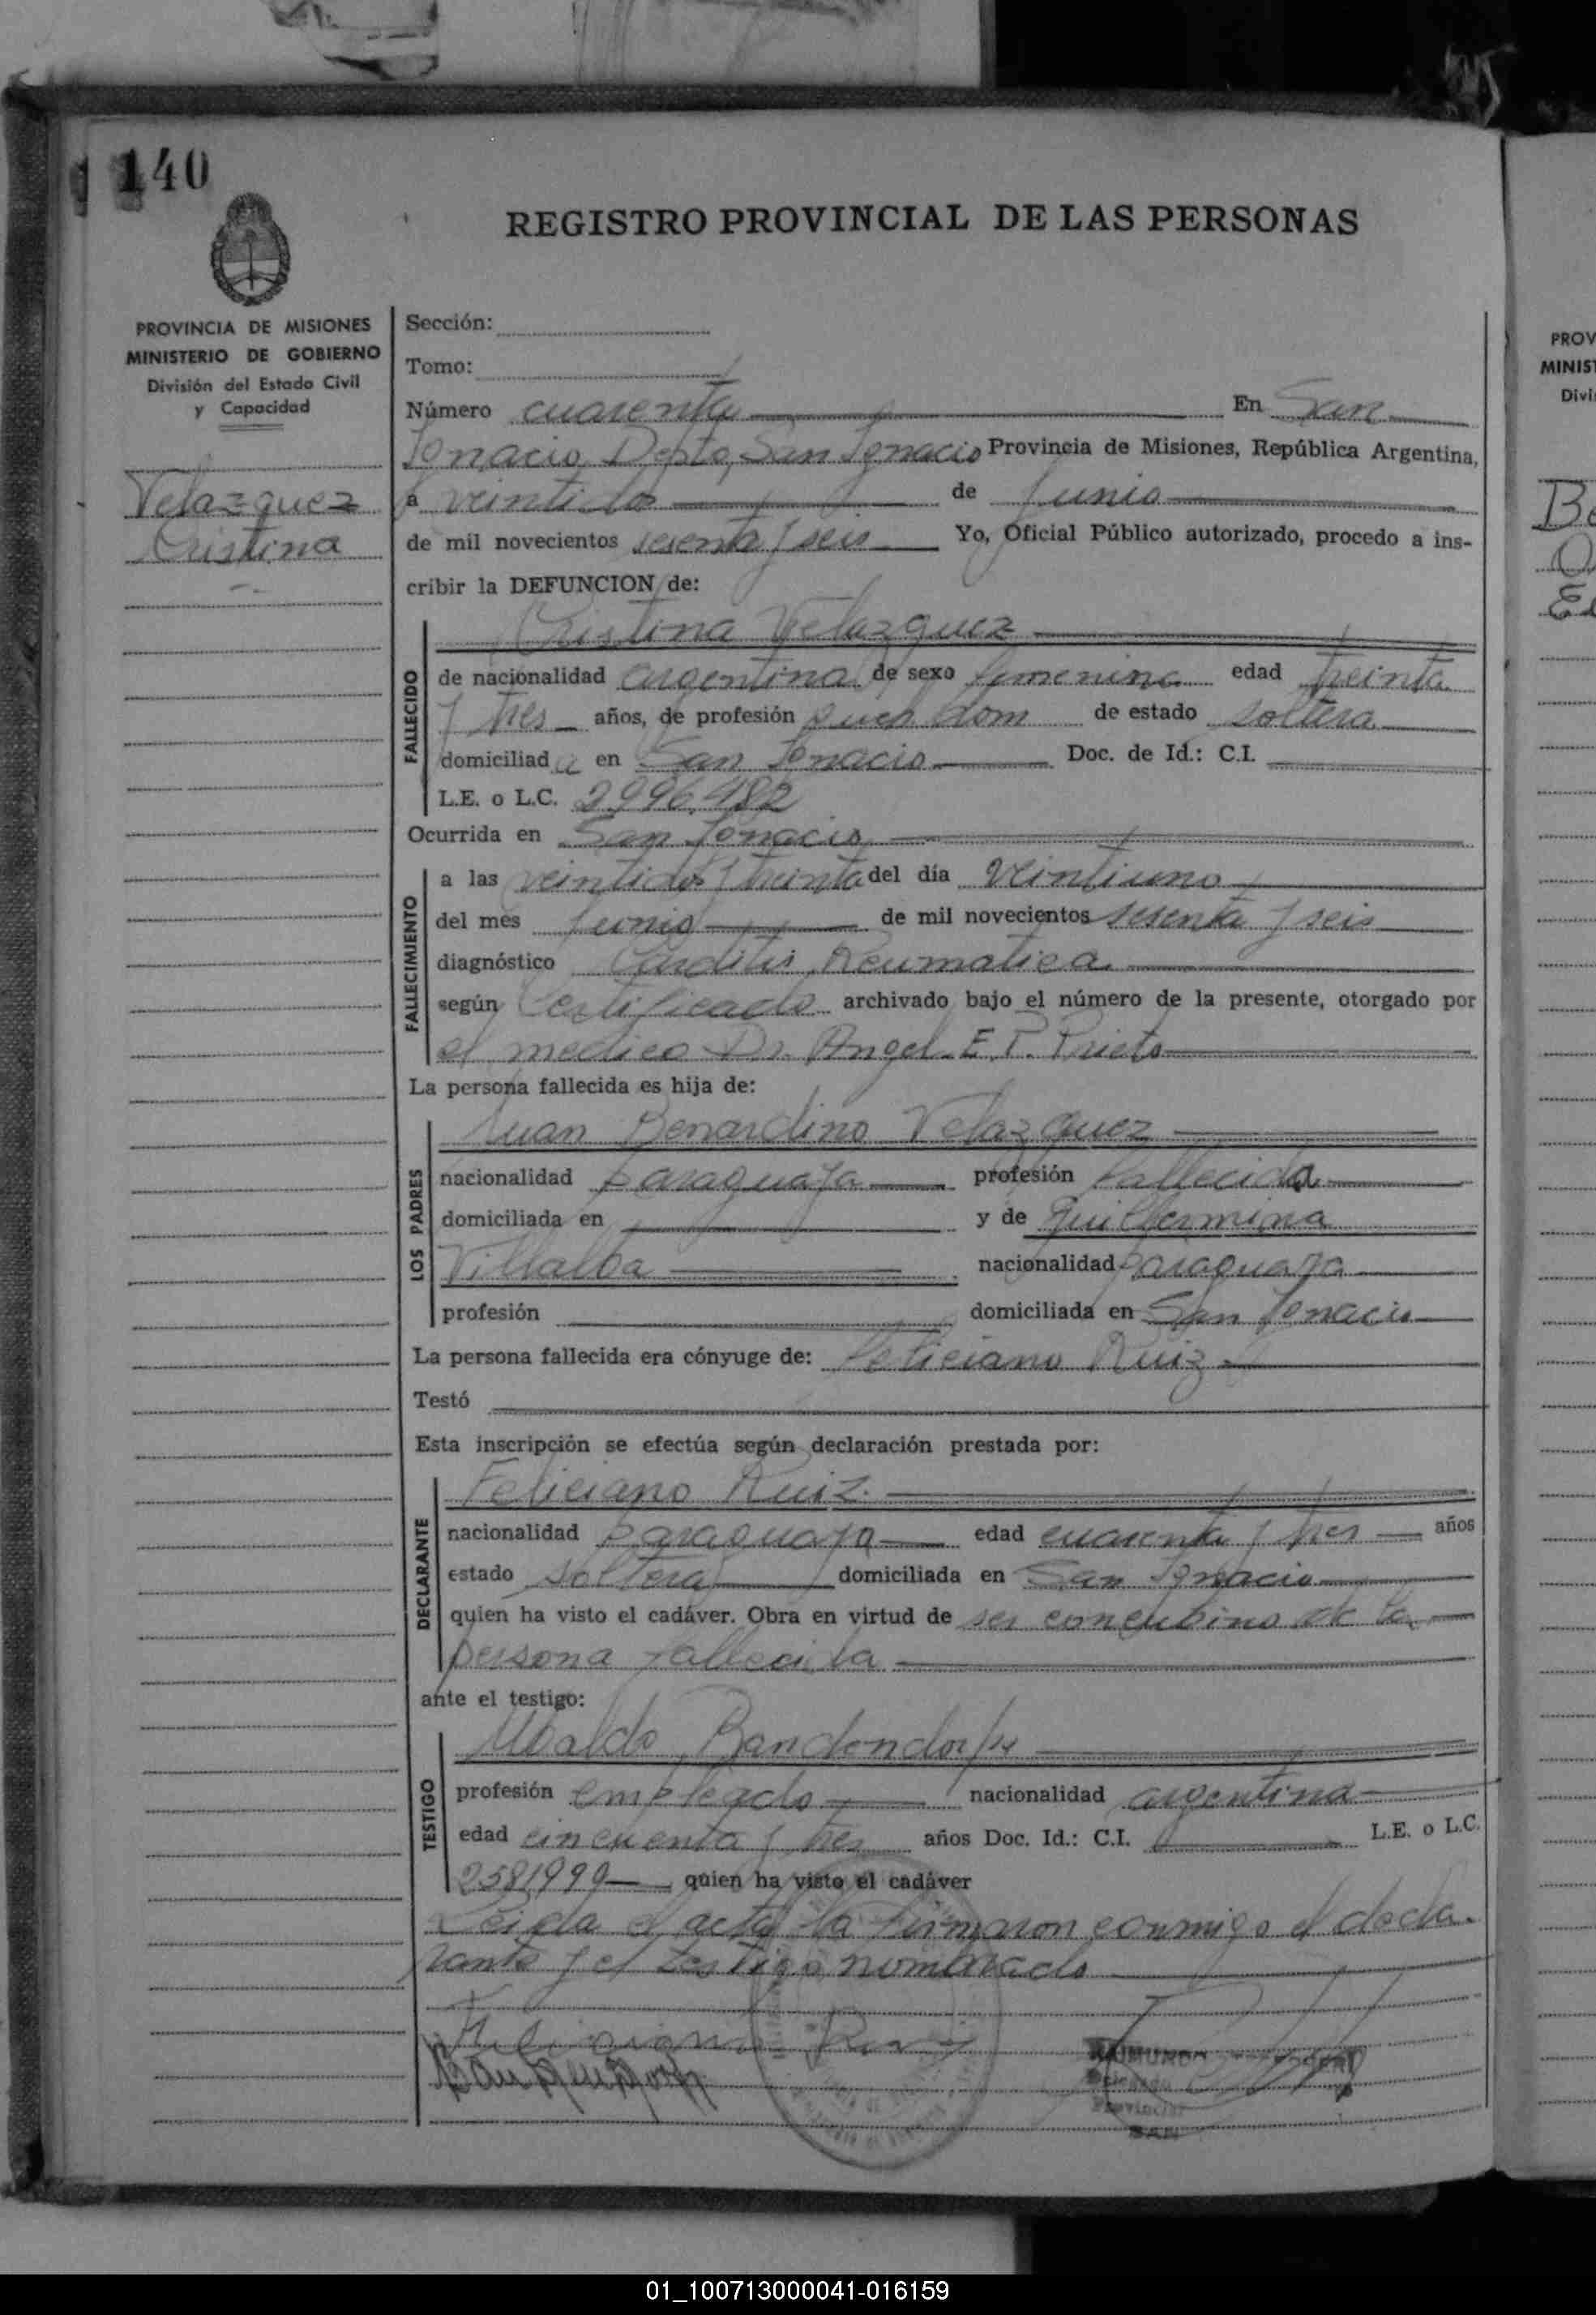 140
REGISTRO PROVINCIAL DE LAS PERSONAS
PROVINCIA DE MISIONES
MINISTERIO DE GOBIERNO
División del Estado Civil
y Capacidad
Velazquez
Cristina
Sección:
Tomo:
Número cuarenta En San
Ignacio, Depto, San Ignacio Provincia de Misiones, República Argentina,
a veintidos de Junio
de mil novecientos sesenta y seis Yo, Oficial Público autorizado, procedo a ins-
cribir la DEFUNCION de:
Cristina Velazquez
FALLECIDO
de nacionalidad argentina de sexo femenino edad treinta
y tres años, de profesión dom de estado soltera
domiciliada en San Ignacio Doc. de Id.: C.I.
L.E. o L.C. 2996,482
Ocurrida en San Ignacio
FALLECIMIENTO
a las veintidos y treinta del día veintiuno
del mes Junio de mil novecientos sesenta y seis
diagnóstico Carditis Reumatica
según Certificado archivado bajo el número de la presente, otorgado por
el medico Dr. Angel E. P. Prieto
La persona fallecida es hija de:
LOS PADRES
Juan Benardino Velazquez
nacionalidad paraguaya profesión fallecida
domiciliada en y de Guillermina
Villalba nacionalidad paraguaya
profesión domiciliada en San Ignacio
La persona fallecida era cónyuge de: Feliciano Ruiz
Testó
Esta inscripción se efectúa según declaración prestada por:
DECLARANTE
Feliciano Ruiz
nacionalidad paraguaya edad cuarenta y tres años
estado soltera domiciliada en San Ignacio
quien ha visto el cadáver. Obra en virtud de ser concubino de la
persona fallecida
ante el testigo:
TESTIGO
Ubaldo
profesión empleado nacionalidad argentina
edad cincuenta y tres años Doc. Id.: C.I. L.E. o L.C.
2581999 quien ha visto el cadáver
Leida el acta la firmaron conmigo el decla-
rante y el testigo nombrado
Feliciano Ruiz
PROV
MINIST
Divi
01_100713000041-016159